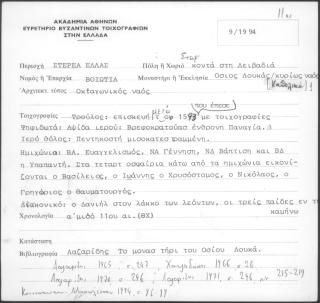 ΑΚΑΔΗΜΙΑ ΑΘΗΝΩΝ
ΕΥΡΕΤΗΡΙΟ ΒΥΖΑΝΤΙΝΩΝ ΤΟΙΧΟΓΡΑΦΙΩΝ
ΣΤΗΝ ΕΛΛΑΔΑ
9/1994
Περιοχή ΣΤΕΡΕΑ ΕΛΛΑΣ Πόλη ή Χωριό κοντά στη Λειβαδιά
Νομός ή Ἐπαρχία ΒΟΙΩΤΙΑ Μοναστήρι ἤ Ἐκκλησία Οσιος Λουκάς/κυρίως ναός
Ἀρχιτεκ. τύπος Οκταγωνικός ναός (Καθολικό)
που έπεσε
μετά
Τοιχογραφίες Τρούλος: επισκευή το 1593 με τοιχογραφίες
Ψηφιδωτά: Αψίδα ιερού: Βρεφοκρατούσα ένθρονη Παναγία.
Ιερό θόλος: Πεντηκοστή μισοκατεστραμμένη.
Ημιχώνια: ΒΑ. Ευαγγελισμός, ΝΑ Γέννηση, ΝΔ Βάπτιση και ΒΔ
η Υπαπαντή. Στα τεταρτοσφαίρια κάτω από τα ημιχώνια εικονί-
ζονται ο Βασίλειος, ο Ιωάννης ο Χρυσόστομος, ο Νικόλαος, ο
Γρηγόριος ο Θαυματουργός.
Διακονικό: ο Δανιήλ στον λάκκο των λεόντων, οι τρείς παίδες εν τη
καμίνω
Χρονολογία α'μισό 11ου αι.(ΘΧ)
Κατάσταση
Βιβλιογραφία Λαζαρίδης Το μοναστήρι του Οσίου Λουκά.
Λαζαρίδης 1965 σ. 247, Χατζηδάκης 1966 σ. 28
Λαζαρίδης 1970 σ. 246, Λαζαρίδης 1971, σ. 246
215-219